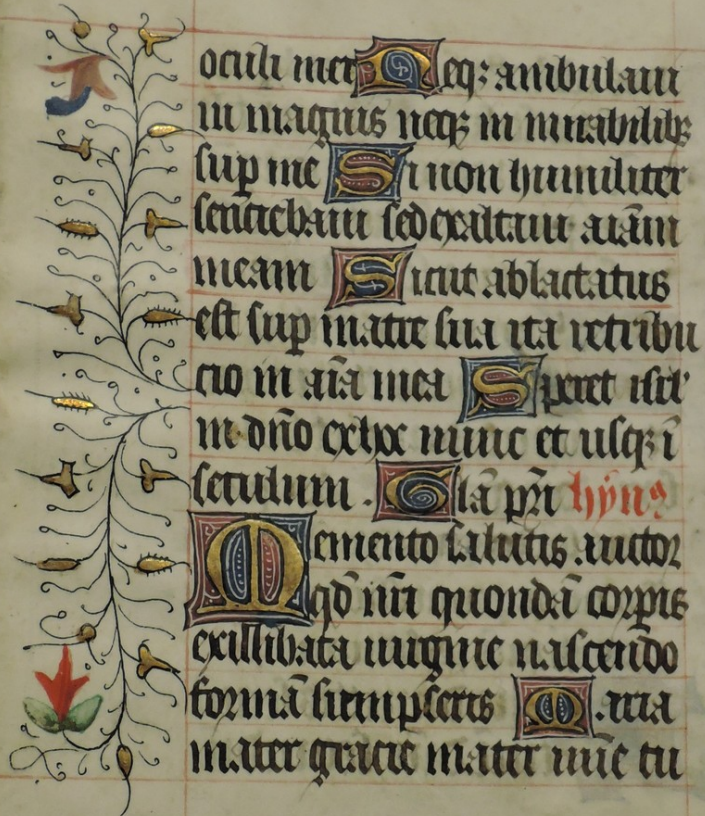 oculi mei Neqꝫ ambulaui
in magnis neqꝫ in mirabilibꝫ
sup me Si non humiliter
senciebam sed exaltaui aīam
meam Sicut ablactatus
est sup matre sua ita retribu
cio in aīa mea Speret isrl'
in dn̄o ex hoc nunc et usqꝫ ī
seculum . Glā pr̄i hȳnꝰ
Memento salutis auctor
qd̄ nr̄i quondā corpis
ex illibata uirgine nascendo
formā sumpseris Maria
mater gracie mater mīe tu